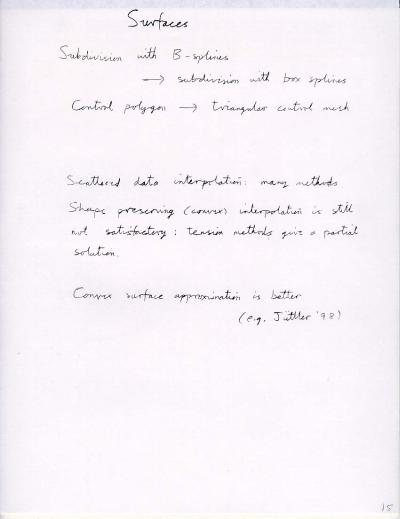 Surfaces
Subdivision with B-splines
→ subdivision with box splines
Control polygon → triangular control mesh
Scattered data interpolation: many methods
Shape preserving (convex) interpolation is still
not satisfactory: tension methods give a partial
solution.
Convex surface approximation is better
(e.g. Jüttler '98)
15